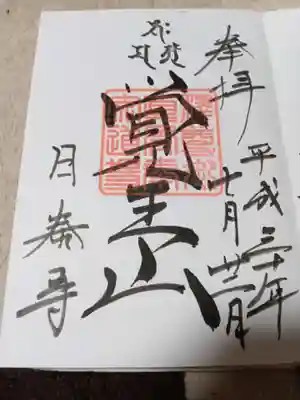 奉拝
平成三十年
七月廿二日
覺王山
日泰寺